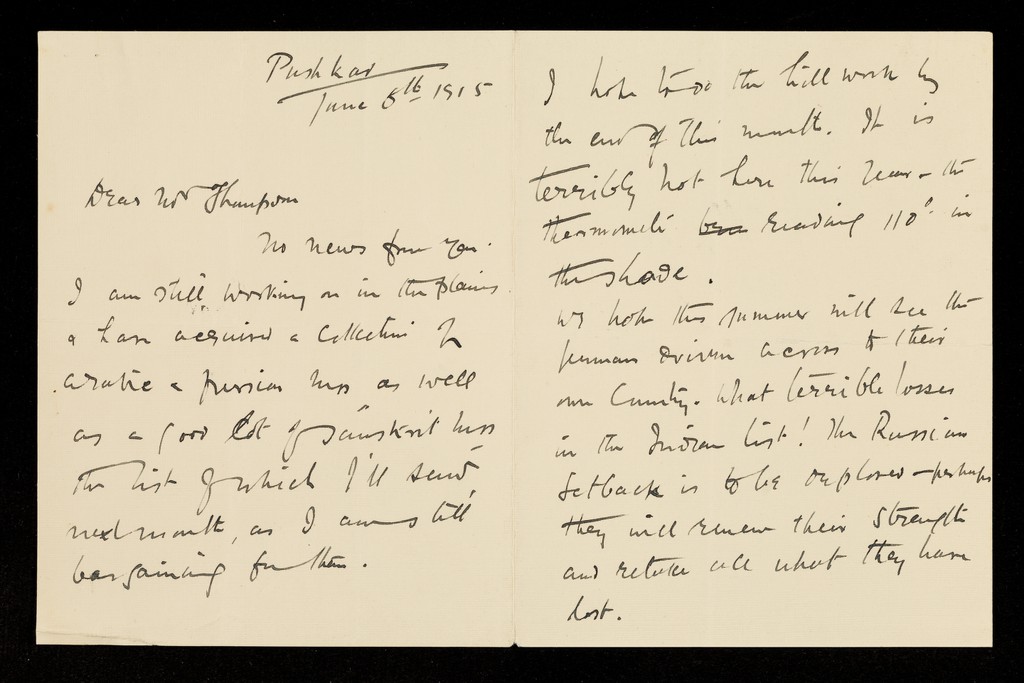 Pushkar
June 8th 1915
Dear Mr Thompson
No news from you.
I am still working on in the plains
& have acquired a collection of
arabic & persian mss as well
as a good lot of Sanskrit mss
the list of which I'll send
next month, as I am still
bargaining for them.
I hope to do the hill work by
the end of this month. It is
terribly hot here this year - the
thermometer reading 110° in
the shade.
We hope this summer will see the
Germans driven across to their
own Country. What terrible losses
in the Indian list! The Russian
Setback is to be deplored - perhaps
they will renew their strength
and retake all what they have
lost.